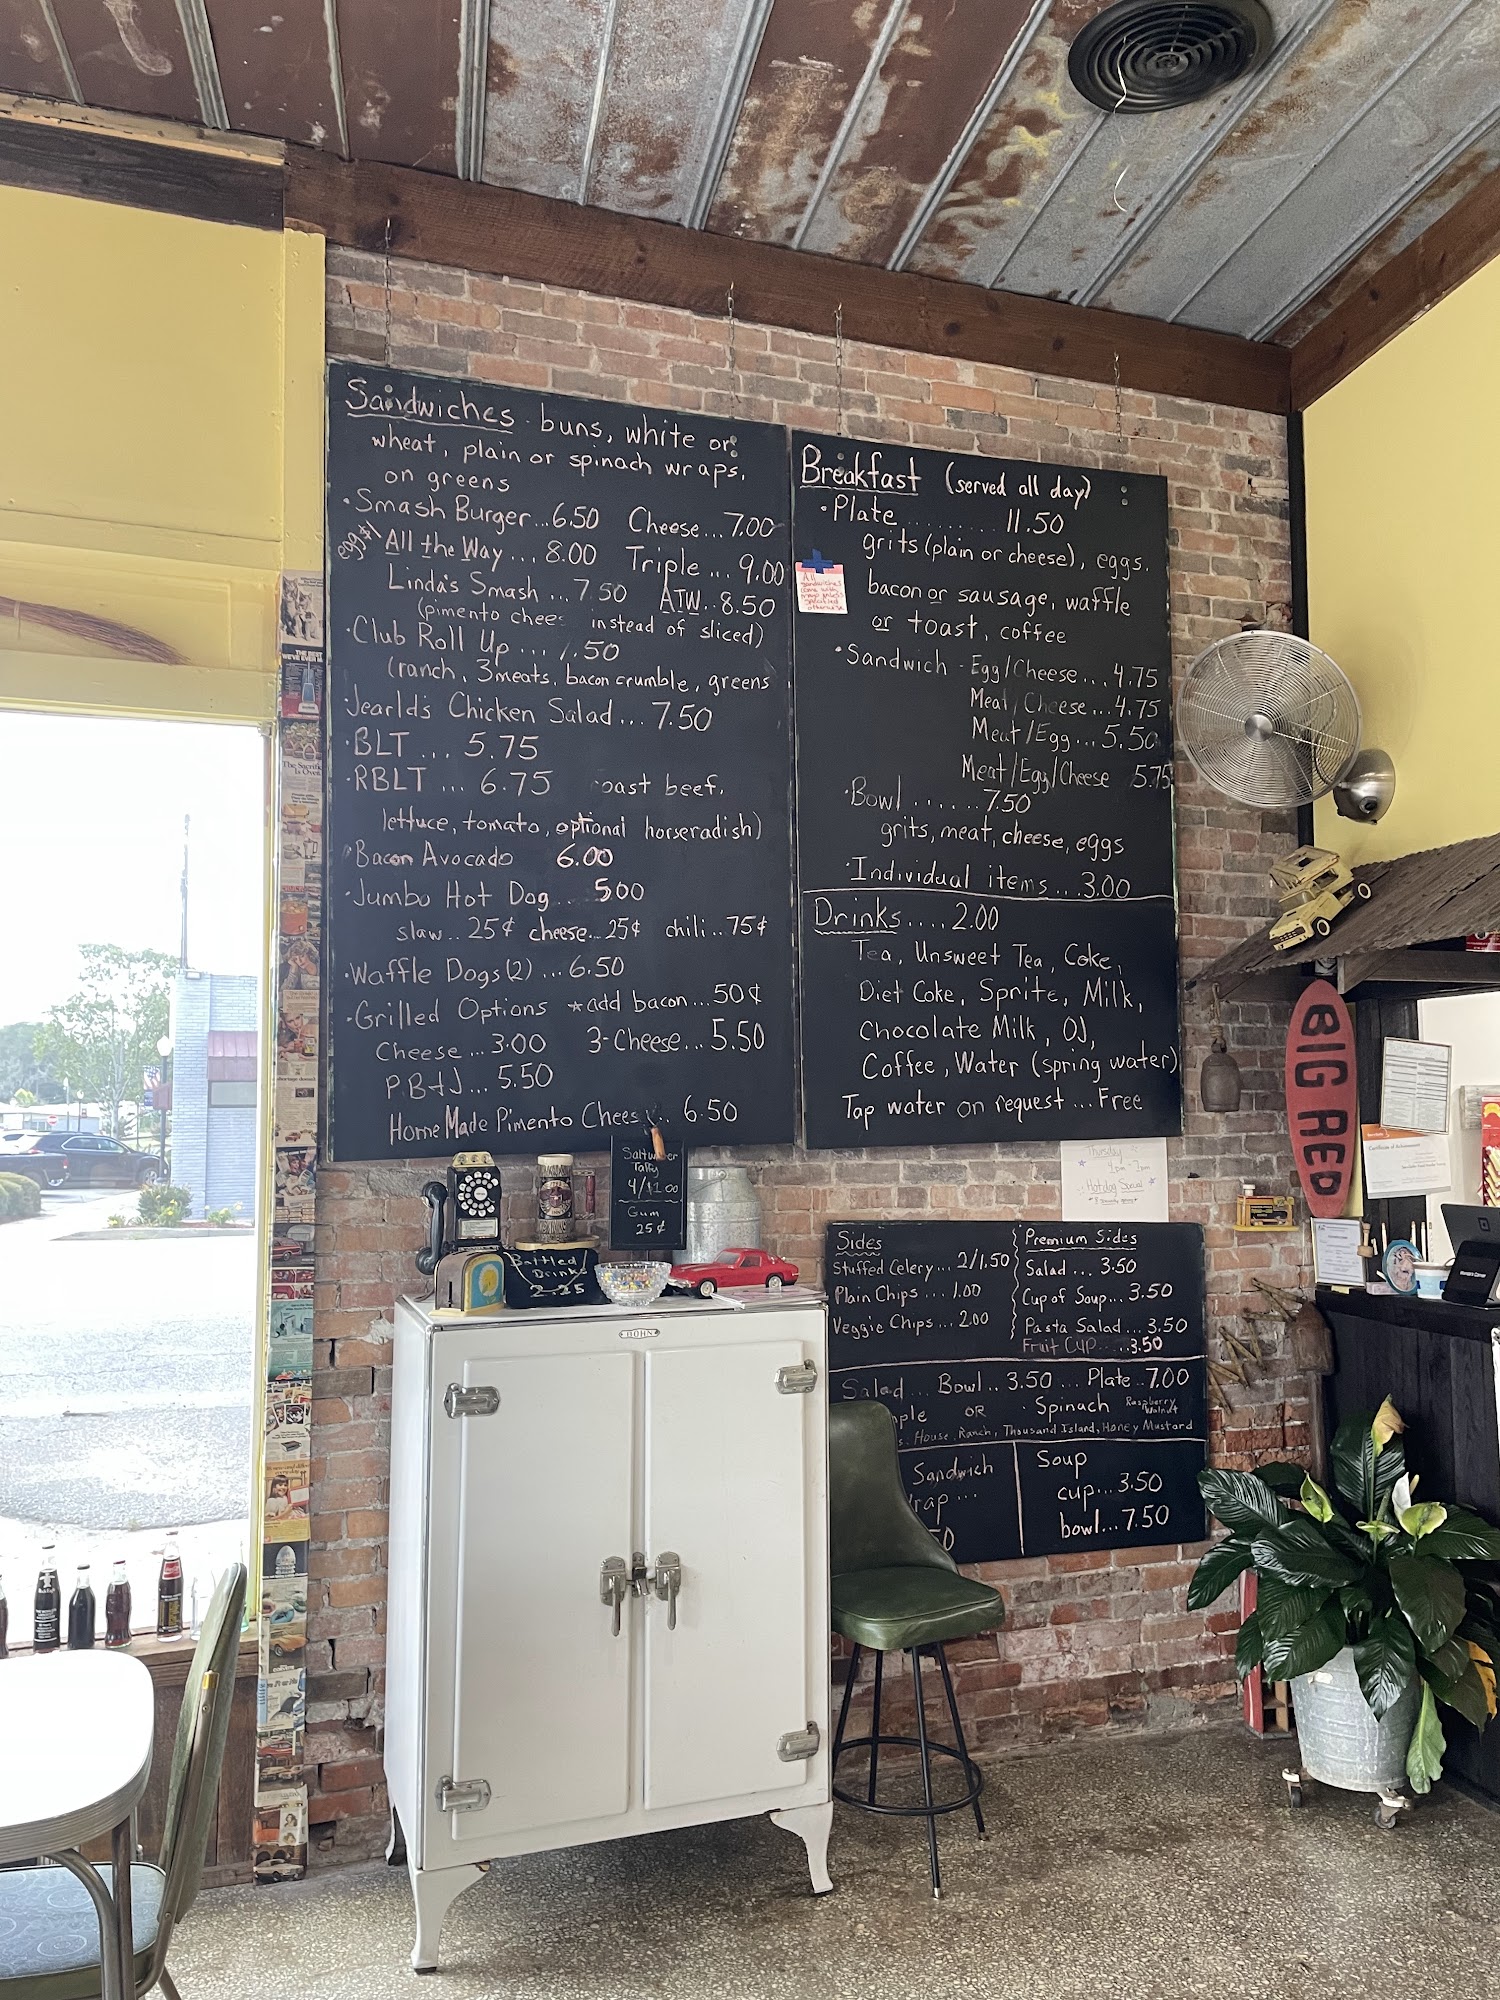 Sandwiches - buns, white or
wheat, plain or spinach wraps,
on greens
· Smash Burger...6.50 Cheese...7.00
egg $1
All the Way...8.00 Triple...9.00
Linda's Smash...7.50 ATW..8.50
(pimento chees instead of sliced)
· Club Roll Up ... .50
(ranch, 3 meats, bacon crumble, greens
· Jearld's Chicken Salad...7.50
· BLT ... 5.75
· RBLT ... 6.75 oast beef,
lettuce, tomato, optional horseradish)
· Bacon Avocado 6.00
· Jumbo Hot Dog... 5.00
slaw.. 25¢ cheese...25¢ chili..75¢
· Waffle Dogs (2) ...6.50
· Grilled Options *add bacon...50¢
Cheese...3.00 3-Cheese...5.50
P.B&J...5.50
Home Made Pimento Cheese... 6.50
Breakfast (served all day)
· Plate.........11.50
grits (plain or cheese), eggs.
bacon or sausage, waffle
or toast, coffee
· Sandwich - Egg/Cheese...4.75
Meat/Cheese...4.75
Meat/Egg...5.50
Meat/Egg/Cheese 5.75
· Bowl ......7.50
grits, meat, cheese, eggs
· Individual items...3.00
Drinks....2.00
Tea, Unsweet Tea, Coke,
Diet Coke, Sprite, Milk,
Chocolate Milk, OJ,
Coffee, Water (spring water)
Tap water on request...Free
All
sandwiches
come with
Saltwater
Taffy
4/$1.00
Gum
25¢
Bottled
Drinks
2.25
HOHN
Thursday
4pm-7pm
Hotdog Special
BIG RED
Certificate of Achievement
Sides
Stuffed Celery...2/1.50
Plain Chips...1.00
Veggie Chips...2.00
Premium Sides
Salad...3.50
Cup of Soup...3.50
Pasta Salad...3.50
Fruit Cup.....3.50
Salad... Bowl..3.50...Plate..7.00
ple OR · Spinach Raspberry Walnut
s. House, Ranch, Thousand Island, Honey Mustard
Sandwich
rap ...
50
Soup
cup...3.50
bowl...7.50